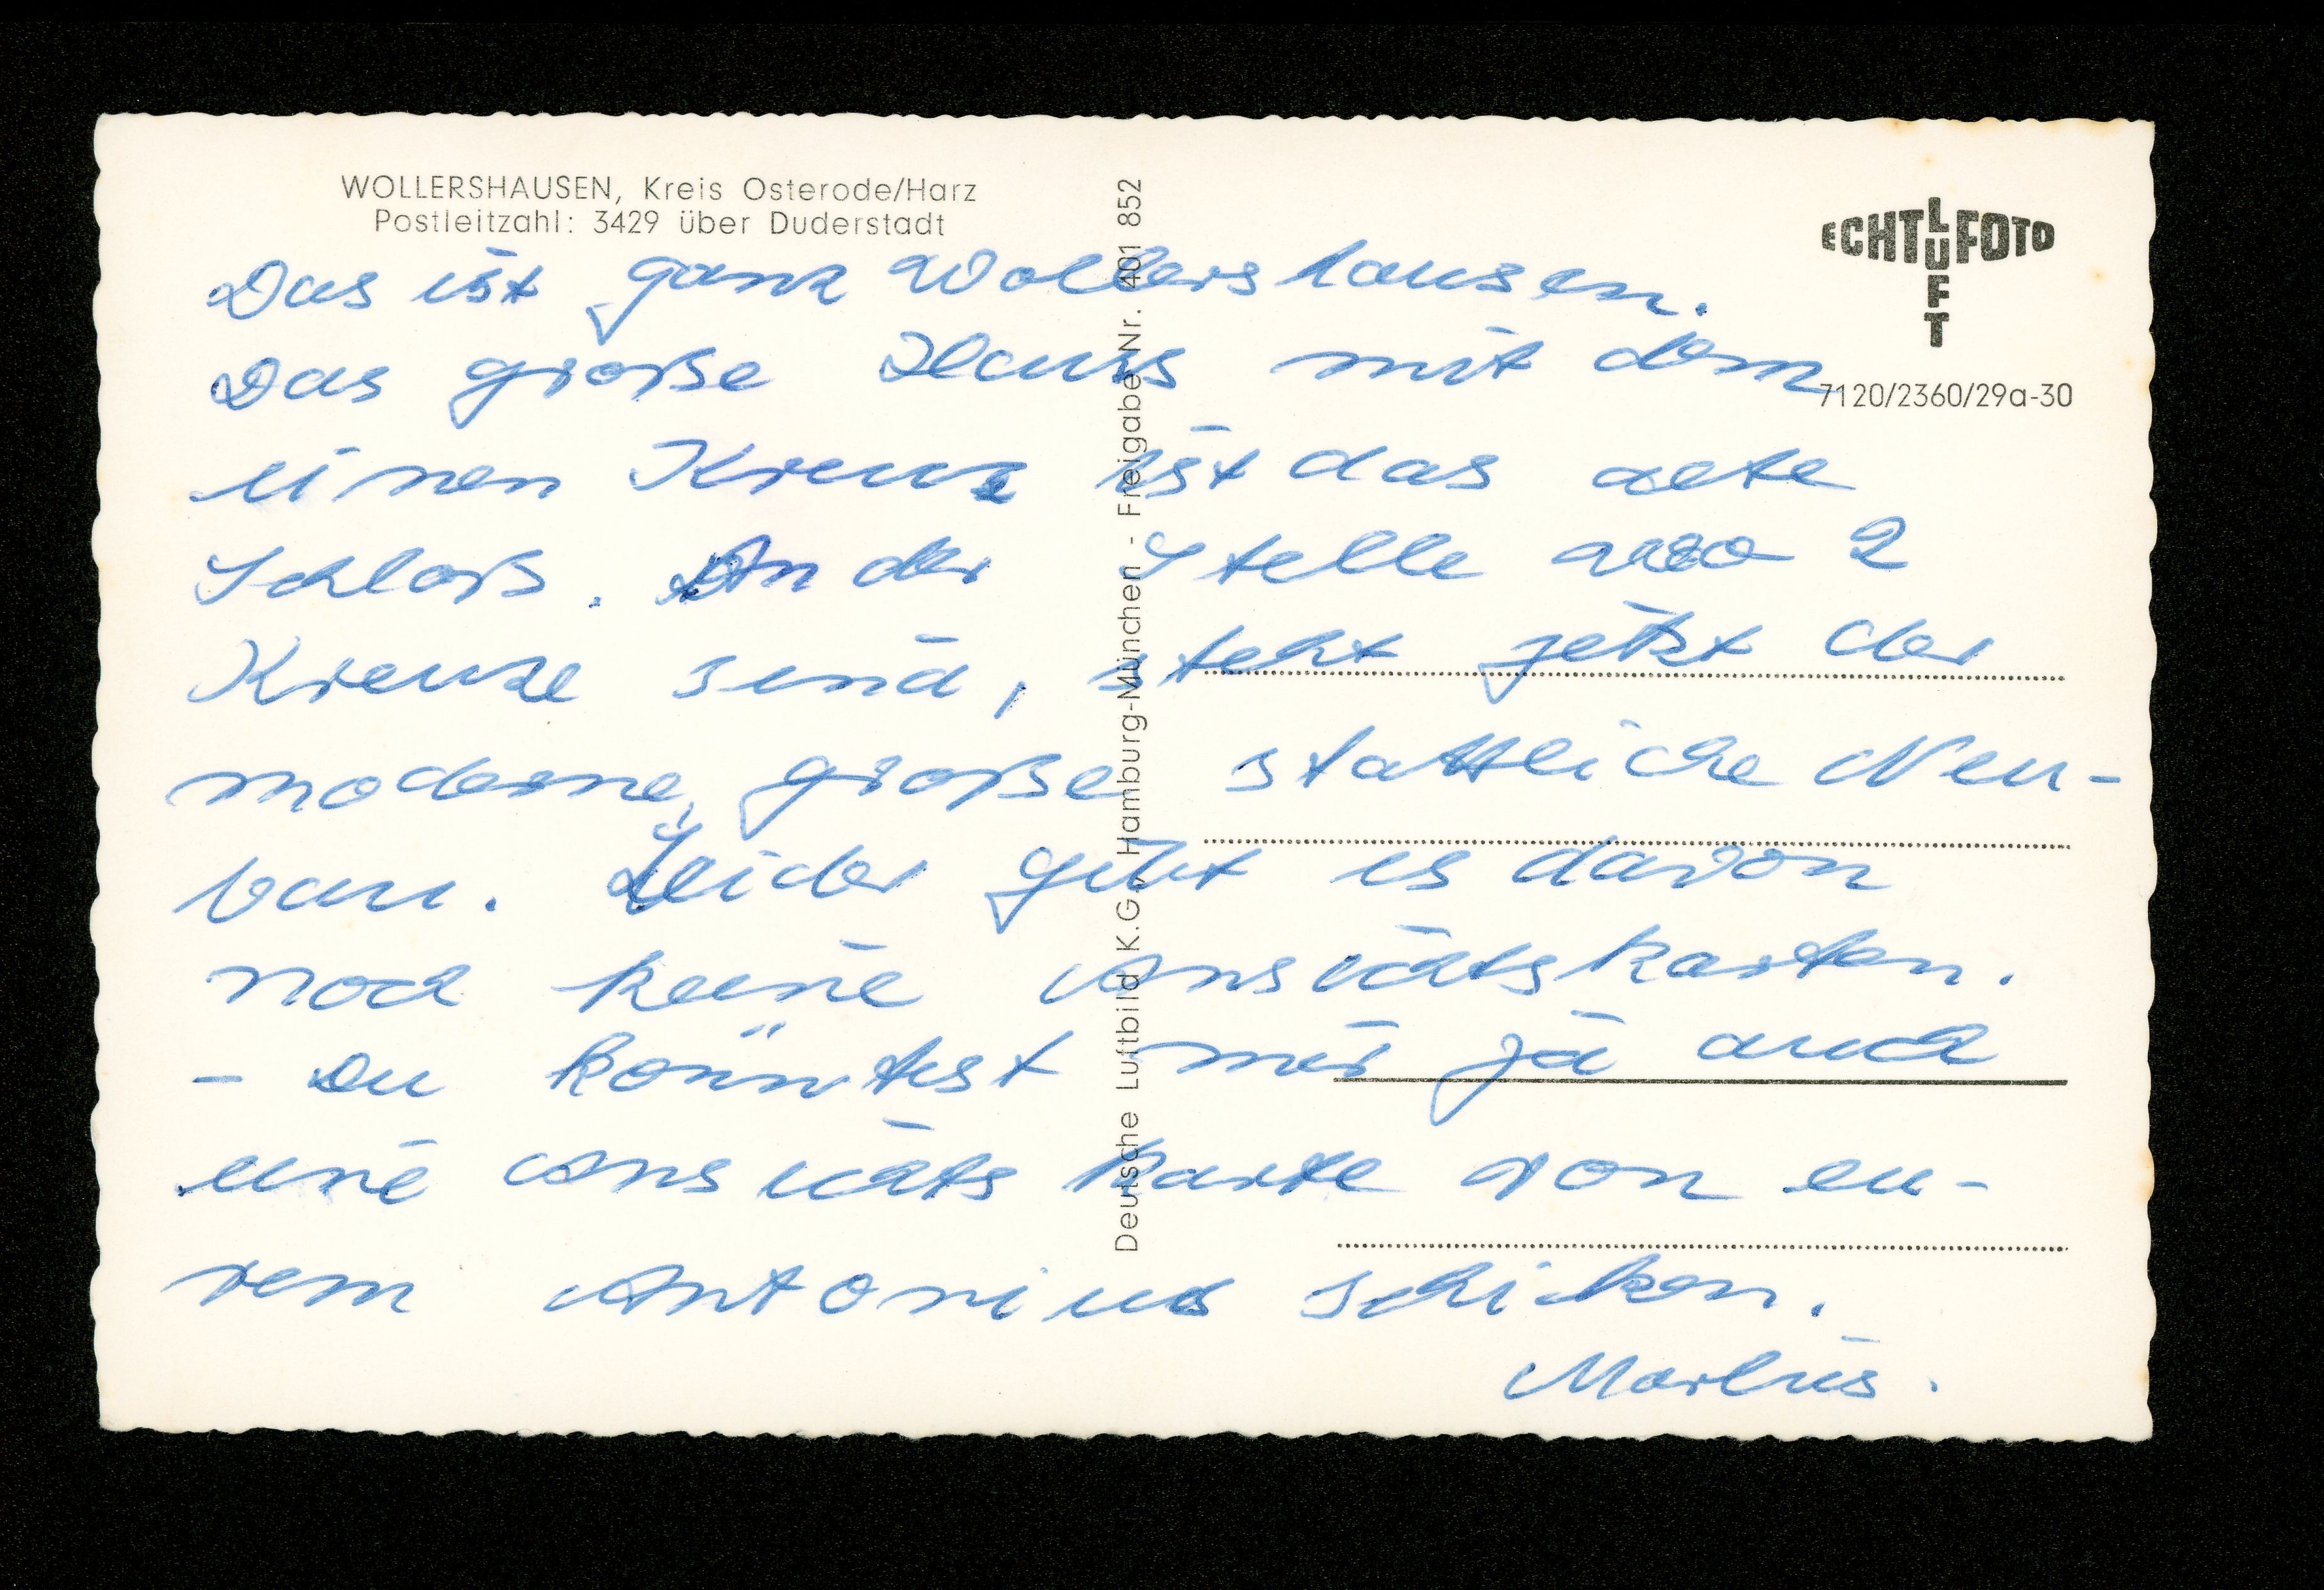 WOLLERSHAUSEN, Kreis Osterode/Harz
Postleitzahl: 3429 über Duderstadt
ECHT LUFT FOTO
7120/2360/29a-30
Deutsche Luftbild K.G., Hamburg-München - Freigabe Nr. 401 852
Das ist ganz Wollershausen.
Das große Haus mit dem
einen Kreuz ist das alte
Schloß. An der Stelle wo 2
Kreuze sind, steht jetzt der
moderne, große stattliche Neu-
bau. Leider gibt es davon
noch keine Ansichtskarten.
- Du könntest mir ja auch
eine Ansichtskarte von eu-
rem Antonius schicken.
Marlis.